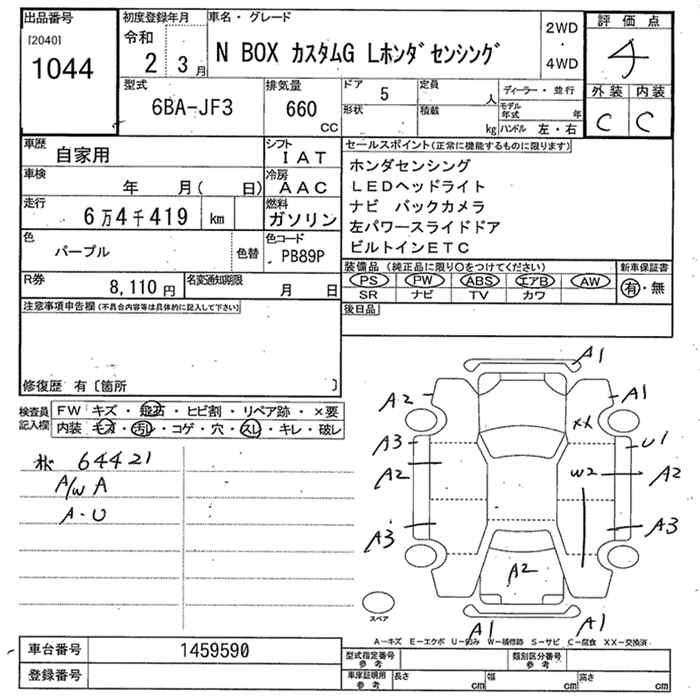 出品番号
[2040]
1044
初度登録年月
令和
2 3月
車名・グレード
N BOX カスタムG Lホンダセンシング
2WD
・
4WD
評価点
外装 内装
C C
型式
6BA-JF3
排気量
660
cc
ドア
5
形状
定員
人
積載
kg
ディーラー・並行
モデル
年式 年
ハンドル 左・右
車歴
自家用
シフト
IAT
車検
年 月( 日)
冷房
AAC
走行
6万4千419 km
燃料
ガソリン
色
パープル
色替
色コード
PB89P
R券
8,110円
名変通知期限
月 日
セールスポイント(正常に機能するものに限ります)
ホンダセンシング
LEDヘッドライト
ナビ バックカメラ
左パワースライドドア
ビルトインETC
装備品(純正品に限り○をつけてください)
PS PW ABS エアB AW
SR ナビ TV カワ
新車保証書
有・無
後日品
注意事項申告欄(不具合内容等は具体的に記入して下さい)
修復歴 有〔箇所 〕
検査員
記入欄
FW キズ・飛石・ヒビ割・リペア跡・×要
内装 キズ・汚レ・コゲ・穴・スレ・キレ・破レ
64421
A/W A
A・U
A1
A2 A1
XX
A3 U1
A2 W2 A2
A3 A3
A2
スペア
A1 A1
A－キズ E－エクボ U－凹み W－補修跡 S－サビ C－腐食 XX－交換済
車台番号 1459590
登録番号
型式指定番号
参考
類別区分番号
参考
車庫証明用
参考
長さ cm 幅 cm 高さ cm